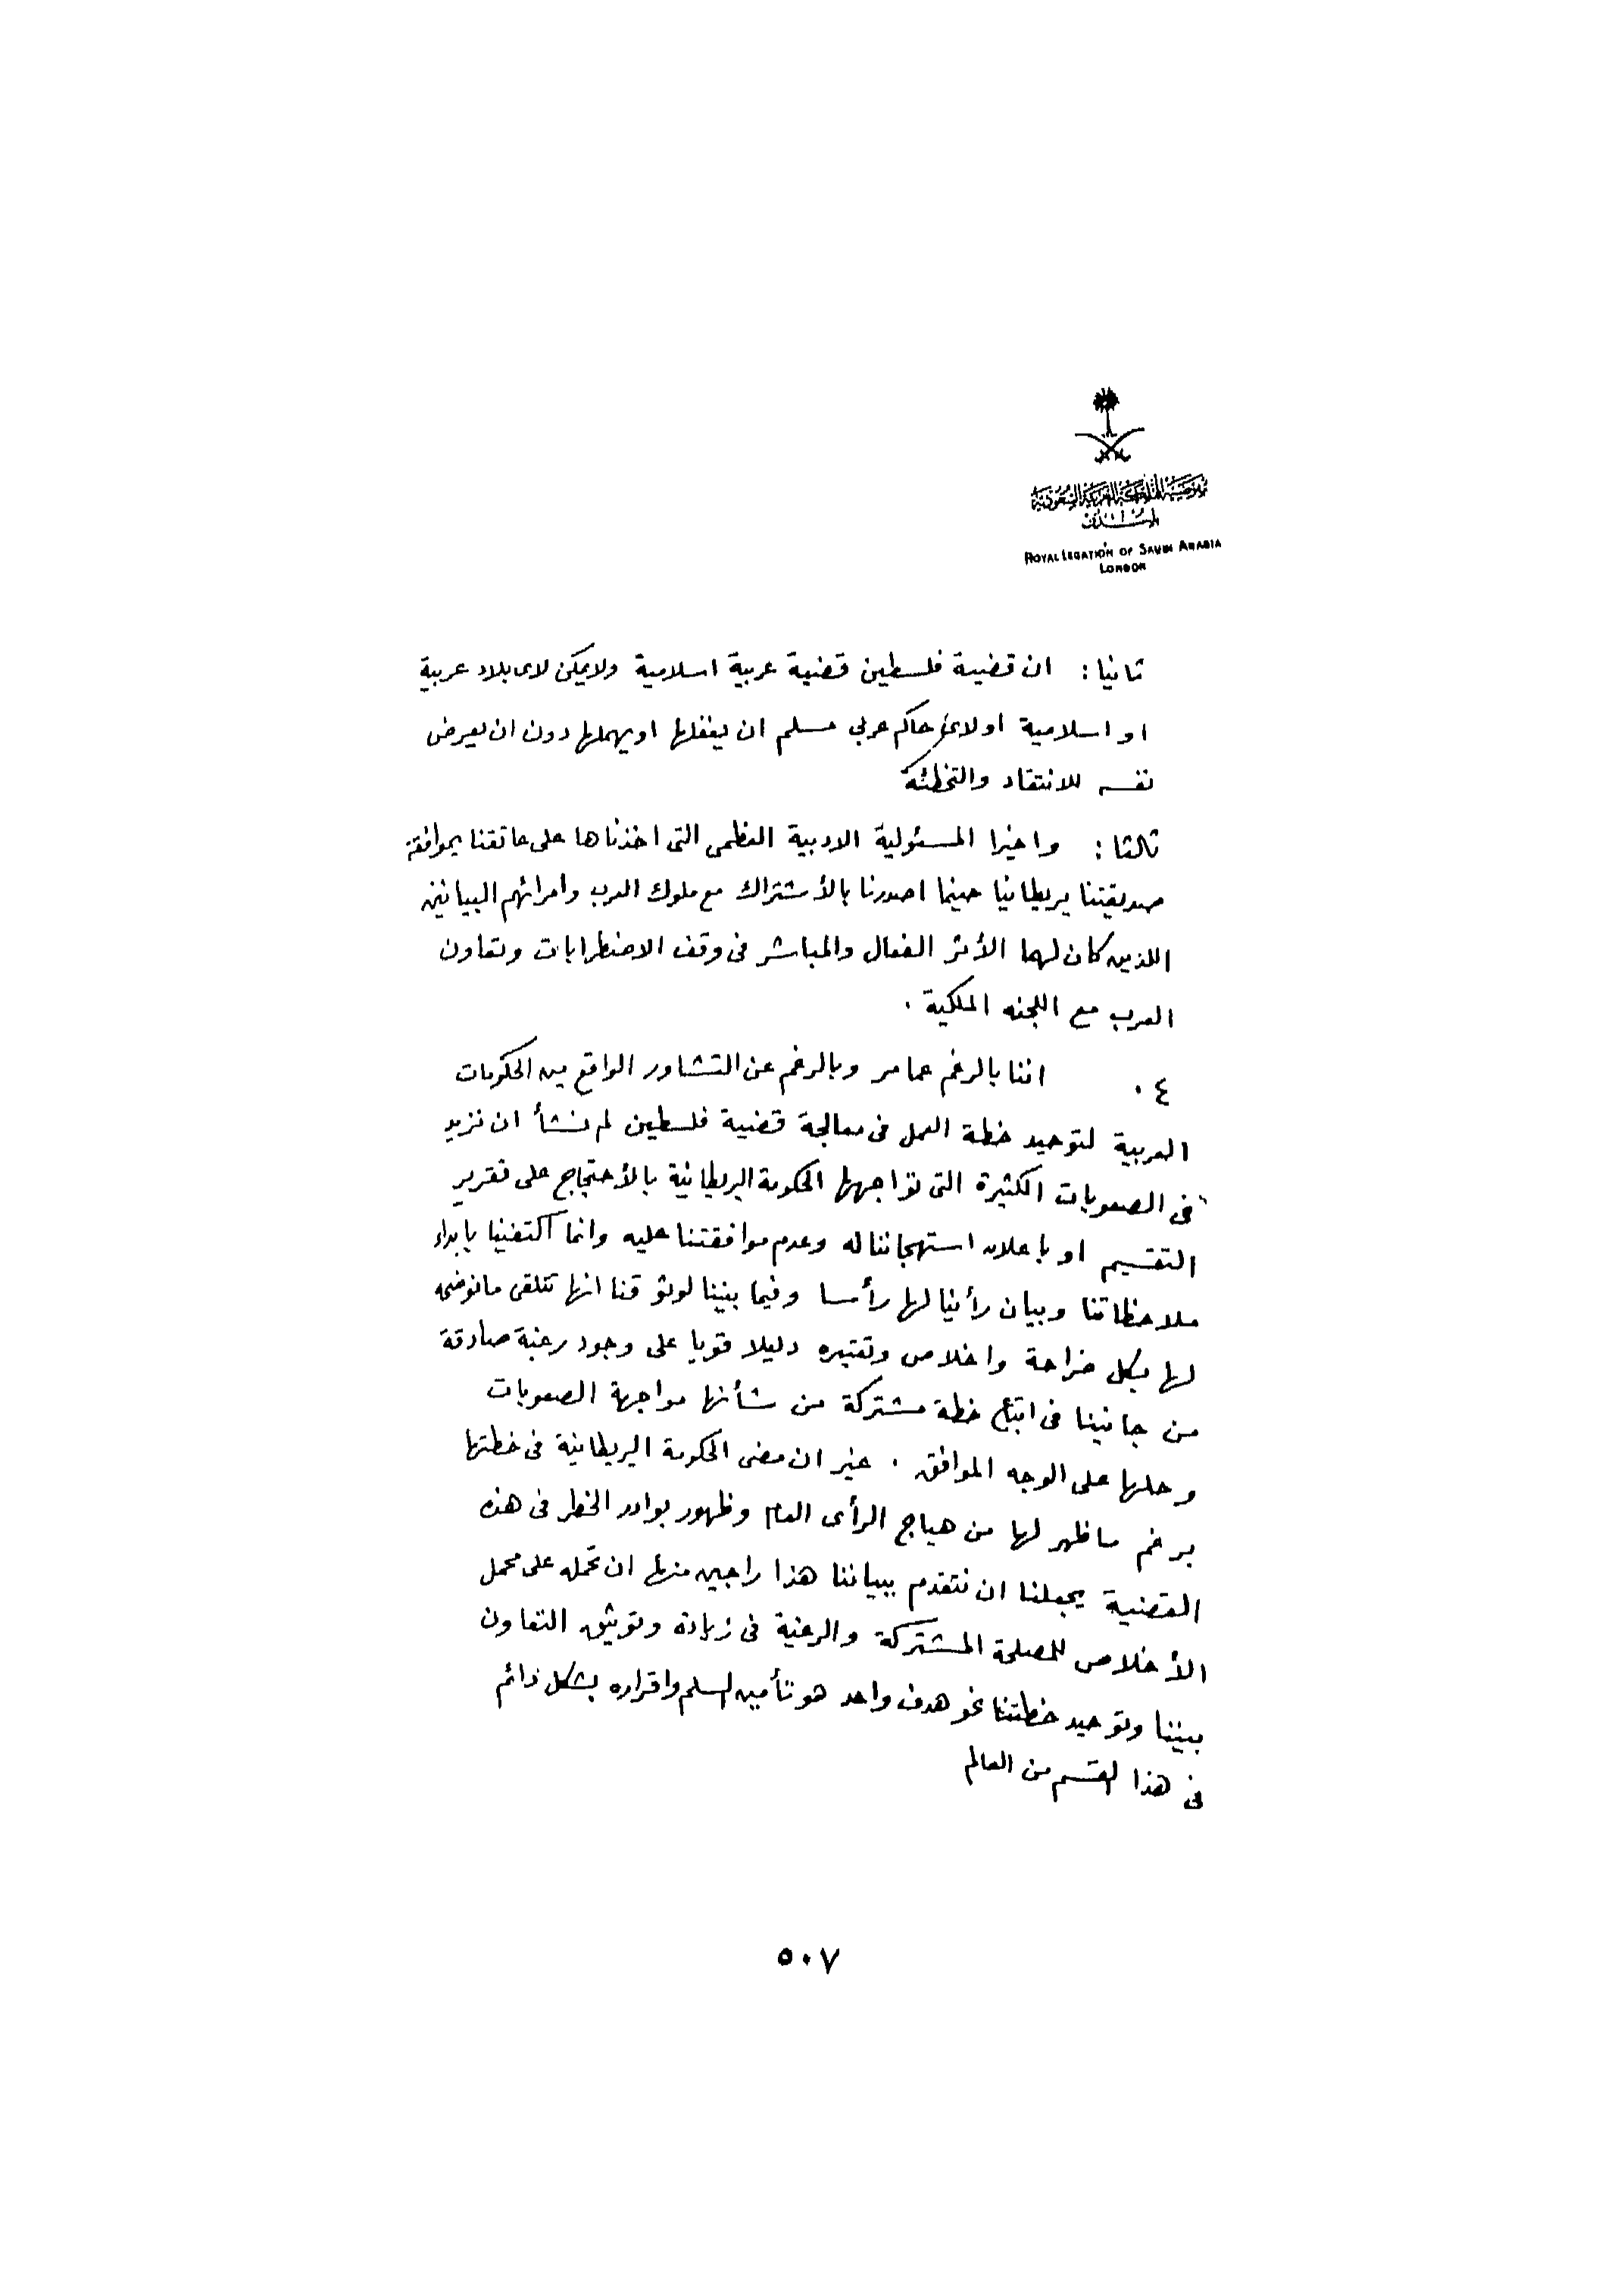 مفوضية المملكة العربية السعودية
بلندن
ROYAL LEGATION OF SAUDI ARABIA
LONDON
ثانيا : ان قضية فلسطين قضية عربية اسلامية ولايمكن لاى بلاد عربية
او اسلامية او لاى حاكم عربي مسلم ان يغفلها او يهملها دون ان يعرض
نفسه للانتقاد والتخطئة
ثالثا : واخيرا المسئولية الادبية العظمى التى اخذناها على عاتقنا بموافقة
صديقتنا بريطانيا حينما اصدرنا بالأشتراك مع ملوك العرب وامرائهم البيانين
اللذين كان لهما الأثر الفعال والمباشر فى وقف الاضطرابات وتعاون
العرب مع اللجنه الملكية .
٤ . اننا بالرغم عما مر وبالرغم عن التشاور الواقع بين الحكومات
العربية لتوحيد خطة العمل فى معالجة قضية فلسطين لم نشأ ان نزيد
فى الصعوبات الكثيرة التى تواجهها الحكومة البريطانية بالأحتجاج على تقرير
التقسيم او باعلان استهجاننا له وعدم موافقتنا عليه وانما اكتفينا بابداء
ملاحظاتنا وبيان رأينا لها رأسا وفيما بيننا لوثوقنا انها تتلقى مانوضحه
لها بكل صراحة واخلاص وتعتبره دليلا قويا على وجود رغبة صادقة
من جانبنا فى اتباع خطة مشتركة من شأنها مواجهة الصعوبات
وحلها على الوجه الموافق . غير ان مضى الحكومة البريطانية فى خطتها
برغم ماظهر لها من هياج الرأى العام وظهور بوادر الخطر فى هذه
القضية يجعلنا ان نتقدم ببياننا هذا راجين منها ان تحمله على محمل
الأخلاص للمصلحة المشتركة والرغبة فى زيادة وتوثيق التعاون
بيننا وتوحيد خطتنا نحو هدف واحد هو تأمين السلم واقراره بشكل دائم
فى هذا القسم من العالم
٥٠٧